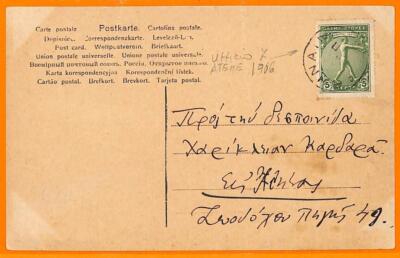 Carte postale. Postkarte. Cartolina postale.
Dopisnice. Correspondenzkarte. Levelező-Lap.
Post card. Weltpostverein. Briefkaart.
Union postale universelle. Unione postale universale.
Всемірный почтовый союзъ. Россія. Открытое письмо.
Karta korrespondencyjna Korespondenční lístek.
Cartão postal. Brefkort. Brevkort. Tarjeta postal.
Ufficio 7
ATENE 1906
ΑΘΗΝΑΙ
Πρός την δεσποινίδα
Χαρίκλειαν Καρδαρᾶ
Εἰς Ἀθήνας
Ζωοδόχου Πηγῆς 49.